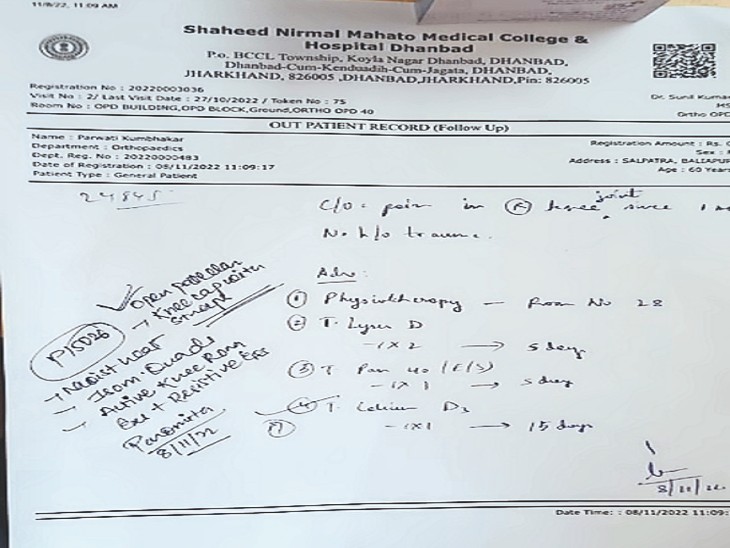 11/8/22, 11:09 AM
Shaheed Nirmal Mahato Medical College &
Hospital Dhanbad
P.o. BCCL Township, Koyla Nagar Dhanbad, DHANBAD,
Dhanbad-Cum-Kenduadih-Cum-Jagata, DHANBAD,
JHARKHAND, 826005 ,DHANBAD,JHARKHAND,Pin: 826005
Registration No : 20220003036
Visit No : 2/ Last Visit Date : 27/10/2022 / Token No : 75
Room No : OPD BUILDING,OPD BLOCK,Ground,ORTHO OPD 40
Dr. Sunil Kumar
MS
Ortho OPD
OUT PATIENT RECORD (Follow Up)
Name : Parwati Kumbhakar
Department : Orthopaedics
Dept. Reg. No : 20220000483
Date of Registration : 08/11/2022 11:09:17
Patient Type : General Patient
Registration Amount : Rs.
Sex :
Address : SALPATRA, BALIAPUR
Age : 60 Years
24845
C/O = pain in (R) knee joint, since 1
No h/o trauma.
Adv:
① Physiotherapy — Room No 28
② T. Lyser D
- 1 x 2 → 5 days
③ T Pan 40 (E/S)
- 1 x 1 → 5 days
④ T. Calcium D3
- 1 x 1 → 15 days
Open patellar
→ Knee cap with
strap
P/5026
→ Moist heat
→ Isom. Quads
→ Active Knee Rom
Exe + Resistive Exe
8/11/22
8/11/22
Date Time: : 08/11/2022 11:09: